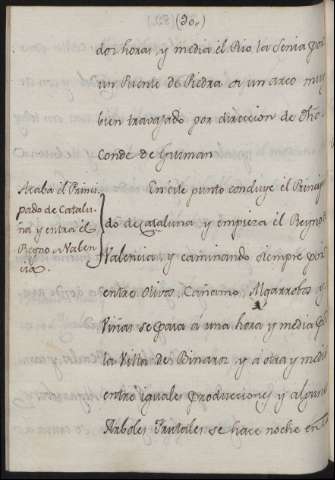 (30.)
dos horas, y media el Rio la Senia por
un Puente de Piedra de un arco muy
bien travajado por direccion de dho
Conde de Gusman
En este punto concluye el Princi-
pado de Cataluna y empieza el Reyno
Valencia, y caminando siempre por
entre Olivos, Cañamo, Algarrobos y
Viñas se pasa á una hora y media por
la Villa de Binaros y á otra y media
entre iguales producciones, y algunos
Arboles frutales se hace noche en
Acaba el Princi-
pado de Catalu-
na y entra el
Reyno d Valen-
cia.